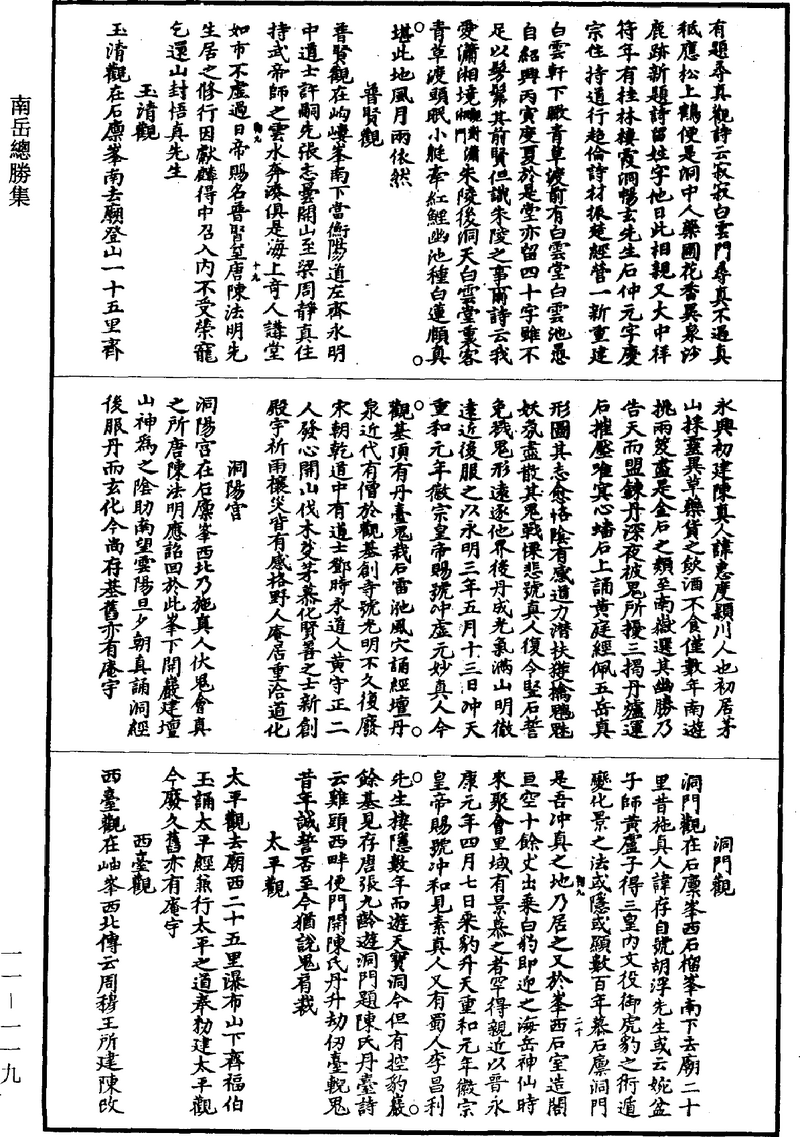 南岳總勝集
有題尋真觀詩云寂寂白雲門尋真不遇真
秪應松上鶴便是洞中人藥圃花香異泉沙
鹿跡新題詩留姓字他日此相親又大中祥
符年有桂林棲霞洞暢玄先生石仲元字慶
宗住持道行超倫詩材振楚經營一新重建
白雲軒下瞰青草渡前有白雲堂白雲池愚
自紹興丙寅度夏於是堂亦留四十字雖不
足以髣髴其前賢但識朱陵之事爾詩云我
愛瀟湘境瀟朱陵後洞天白雲堂裏客
青草渡頭眠小艇牽紅鯉幽池種白蓮願真
堪此地風月兩依然
普賢觀
普賢觀在岣嶁峯南下當衡陽道左齊永明
中道士許嗣先張志曇開山至梁周靜真住
持武帝師之雲水奔湊俱是海上奇人講堂
如市不虛過日帝賜名普賢至唐陳法明先
生居之修行因獻麟得中召入內不受榮寵
乞還山封悟真先生
玉清觀
玉清觀在石廩峯南去廟登山一十五里齊
永興初建陳真人諱惠度潁川人也初居茅
山採靈異草藥貨之飲酒不食僅數年南遊
挑兩笈盡是金石之類至南嶽選其幽勝乃
告天而盟鍊丹深夜被鬼所擾三揭丹爐運
石摧壓唯冥心蟠石上誦黃庭經佩五岳真
形圖其志愈恪陰有感道力潛扶獲擒魑魅
妖氛盡散其鬼戰慄悲號真人復令堅石誓
免戮鬼形遠逐他界後丹成光氣滿山明徹
遠近後服之以永明三年五月十三日沖天
重和元年徽宗皇帝賜號沖虛元妙真人今
觀基頂有丹臺鬼栽石雷池風穴誦經壇丹
泉近代有僧於觀基創寺號光明不久復廢
宋朝乾道中有道士鄧時永道人黃守正二
人發心開山伐木芟茅慕化賢善之士新創
殿宇祈雨禳災皆有感格野人庵居重洽道化
洞陽宮
洞陽宮在石廩峯西北乃施真人伏鬼會真
之所唐陳法明應詔回於此峯下開巖建壇
山神為之陰助南望雲陽旦夕朝真誦洞經
後服丹而玄化今尚存基舊亦有庵宇
洞門觀
洞門觀在石廩峯西石榴峯南下去廟二十
里昔施真人諱存自號胡浮先生或云婉盆
子師黃盧子得三皇內文役御虎豹之術遁
變化景之法或隱或顯數百年慕石廩洞門
是吾沖真之地乃居之又於峯西石室造閣
亘空十餘丈出乘白豹即迎之海岳神仙時
來聚會里域有景慕之者罕得親近以晉永
康元年四月七日乘豹升天重和元年徽宗
皇帝賜號沖和見素真人又有蜀人李昌利
先生棲隱數年而遊天寶洞今但有控豹巖
餘基見存唐張九齡遊洞門題陳氏丹臺詩
云雞頭西畔使門開陳氏丹升劫仞臺輗鬼
昔年誠誓否至今猶說鬼肴栽
太平觀
太平觀去廟西二十五里瀑布山下齊福伯
玉誦太平經兼行太平之道奉勑建太平觀
今廢久舊亦有庵宇
西臺觀
西臺觀在岫峯西北傳云周穆王所建陳改
一一—一一九